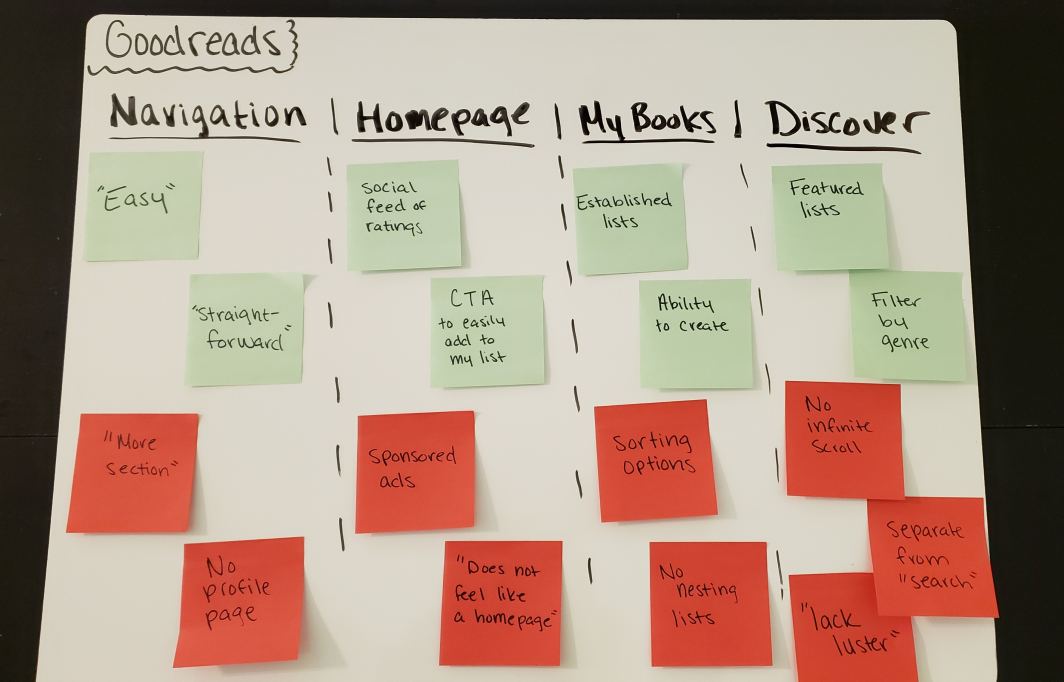 Goodreads
Navigation | Homepage | My Books | Discover
"Easy"
"Straight-
forward"
"More
section"
No
profile
page
Social
feed of
ratings
CTA
to easily
add to
my list
Sponsored
ads
"Does not
feel like
a homepage"
Established
lists
Ability
to create
Sorting
options
No
nesting
lists
Featured
lists
Filter
by
genre
No
infinite
scroll
Separate
from
"search"
"lack
luster"